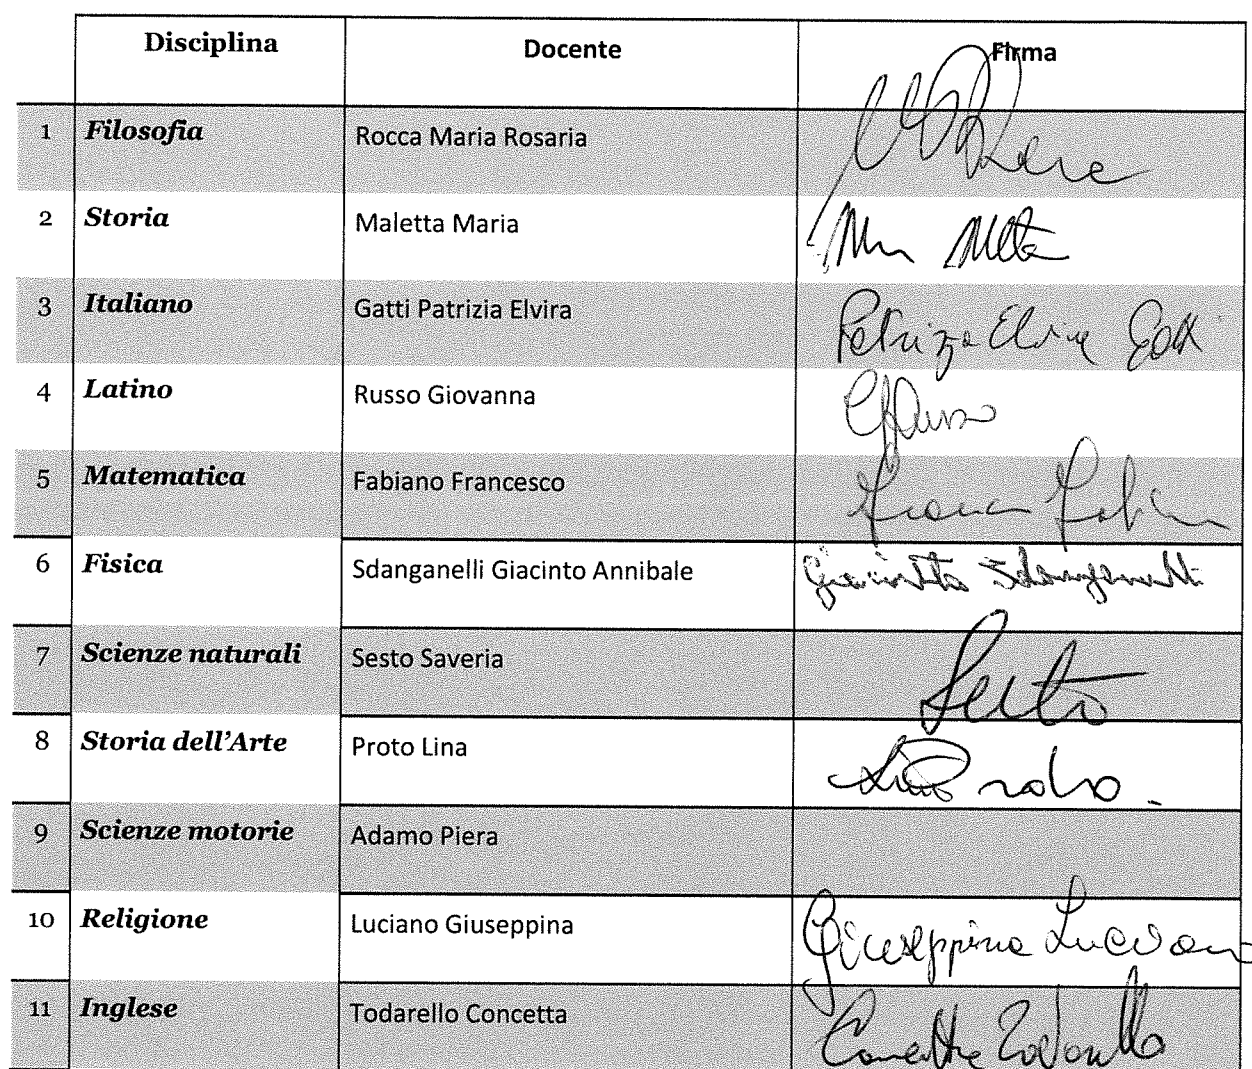 Disciplina Docente Firma
1 Filosofia Rocca Maria Rosaria
2 Storia Maletta Maria
3 Italiano Gatti Patrizia Elvira Patrizia Elvira Gatti
4 Latino Russo Giovanna GRusso
5 Matematica Fabiano Francesco
6 Fisica Sdanganelli Giacinto Annibale Giacinto Sdanganelli
7 Scienze naturali Sesto Saveria Sesto
8 Storia dell'Arte Proto Lina Lina Proto.
9 Scienze motorie Adamo Piera
10 Religione Luciano Giuseppina Giuseppina Luciano
11 Inglese Todarello Concetta Concetta Todarello